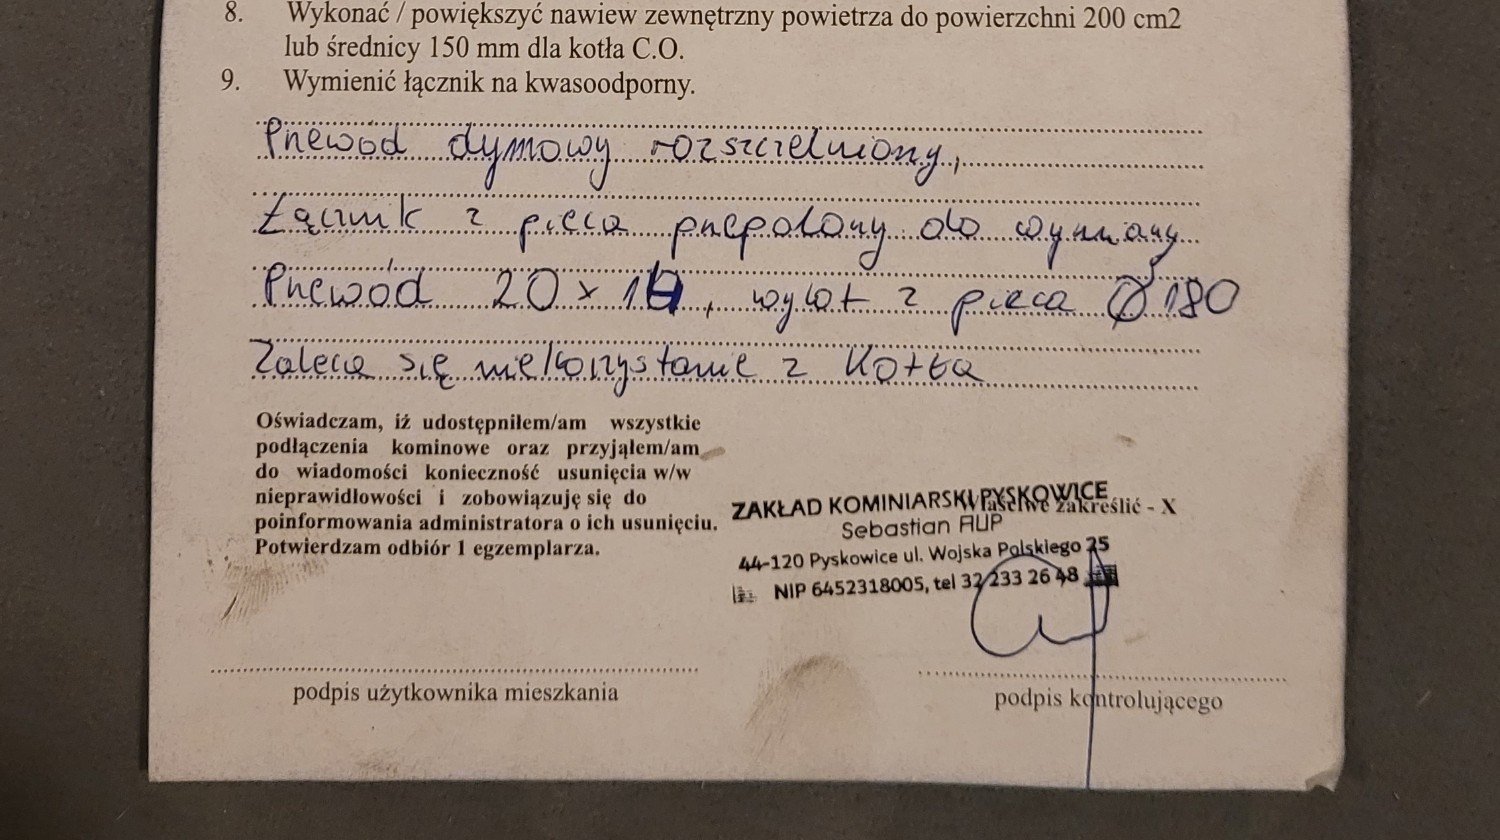 8. Wykonać / powiększyć nawiew zewnętrzny powietrza do powierzchni 200 cm2
lub średnicy 150 mm dla kotła C.O.
9. Wymienić łącznik na kwasoodporny.
Przewód dymowy rozszczelniony,
Łącznik z pieca przepalony do wymiany
Przewód 20 x 14, wylot z pieca Ø 180
Zaleca się niekorzystanie z kotła
Oświadczam, iż udostępniłem/am wszystkie
podłączenia kominowe oraz przyjąłem/am
do wiadomości konieczność usunięcia w/w
nieprawidłowości i zobowiązuję się do
poinformowania administratora o ich usunięciu.
Potwierdzam odbiór 1 egzemplarza.
Właściwe zakreślić - X
ZAKŁAD KOMINIARSKI PYSKOWICE
Sebastian
44-120 Pyskowice ul. Wojska Polskiego 25
NIP 6452318005, tel 32 233 26 48
podpis użytkownika mieszkania
podpis kontrolującego